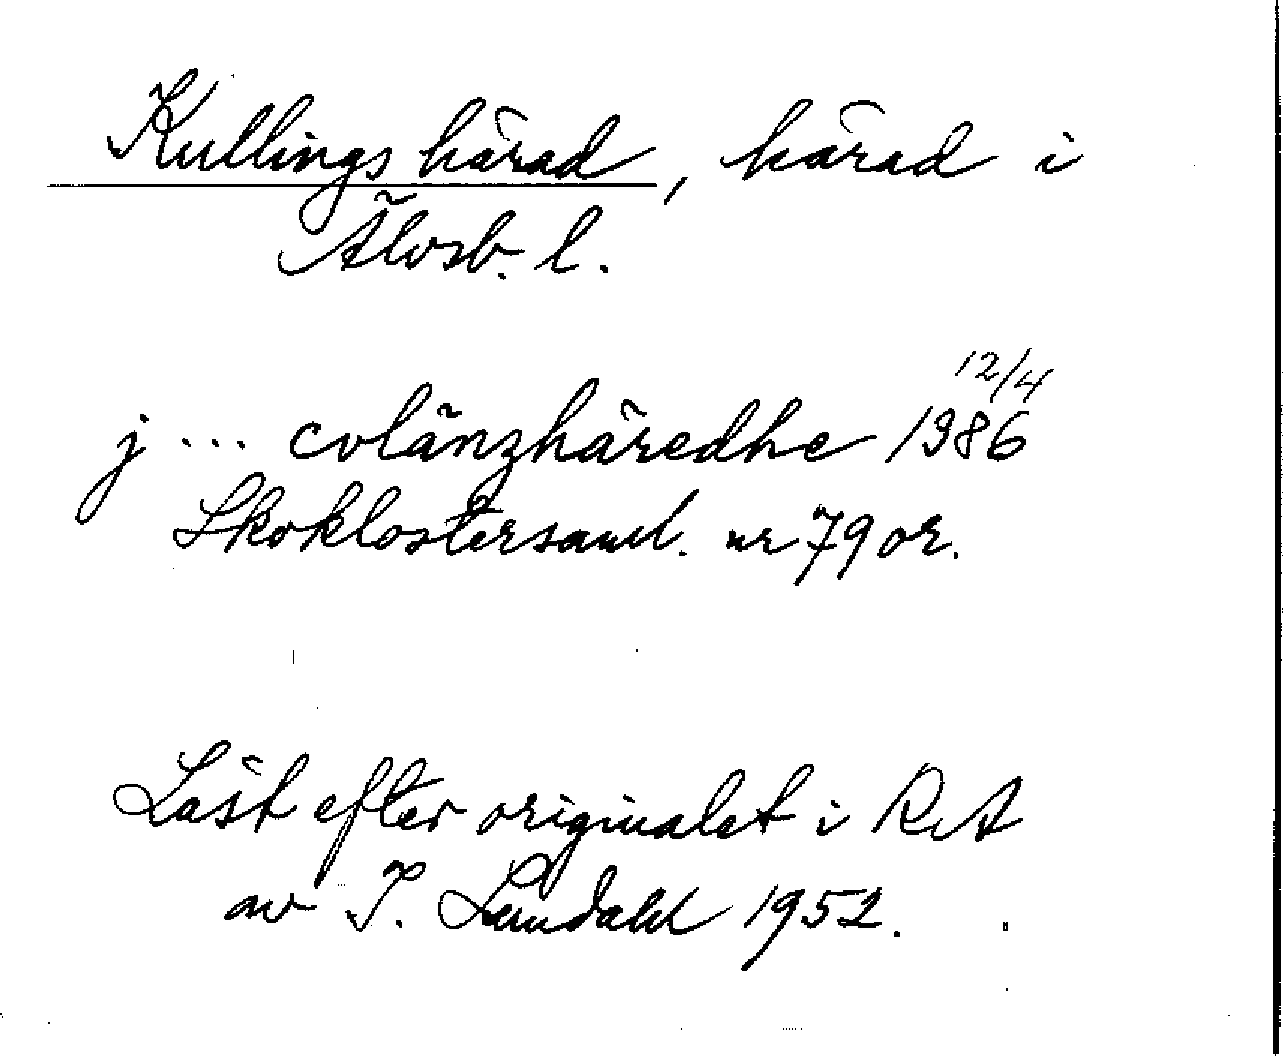 Kullings härad, härad i
Älvsb. l.
12/4
j ... colänzhäredhe 1986
Skoklostersaml. nr 79 or.
Läst efter originalet i RA
av I. Lundahl 1952.